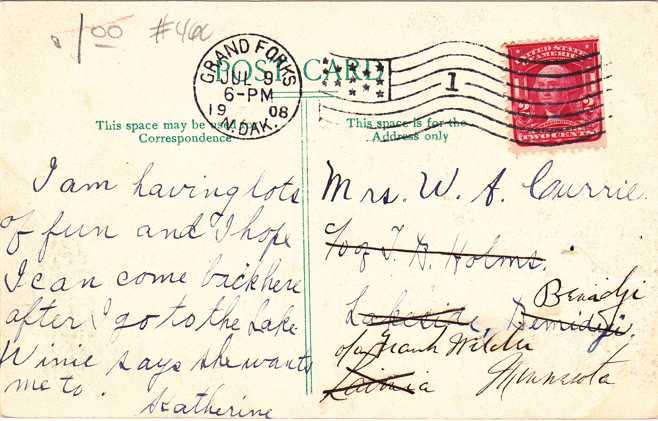 1.00 #46c
POST CARD
GRAND FORKS
JUL 9
6-PM
1908
N.DAK.
1
UNITED STATES
OF AMERICA
2 2
TWO CENTS
This space may be used for
Correspondence
This space is for the
Address only
I am having lots
of fun and I hope
I can come back here
after I go to the Lake
Winie says she wants
me to.
Katherine
Mrs. W. A. Currie
c/o of T. G. Holms.
Lakeside, Bemidji.
Bemidji
o/o Frank Welch
Minnesota